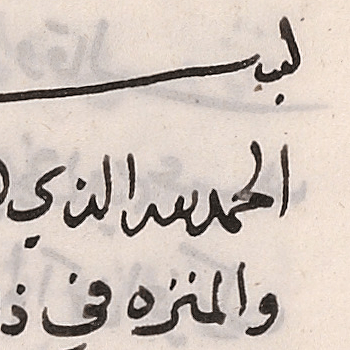 الحمد لله الذي
والمنزه في ذ